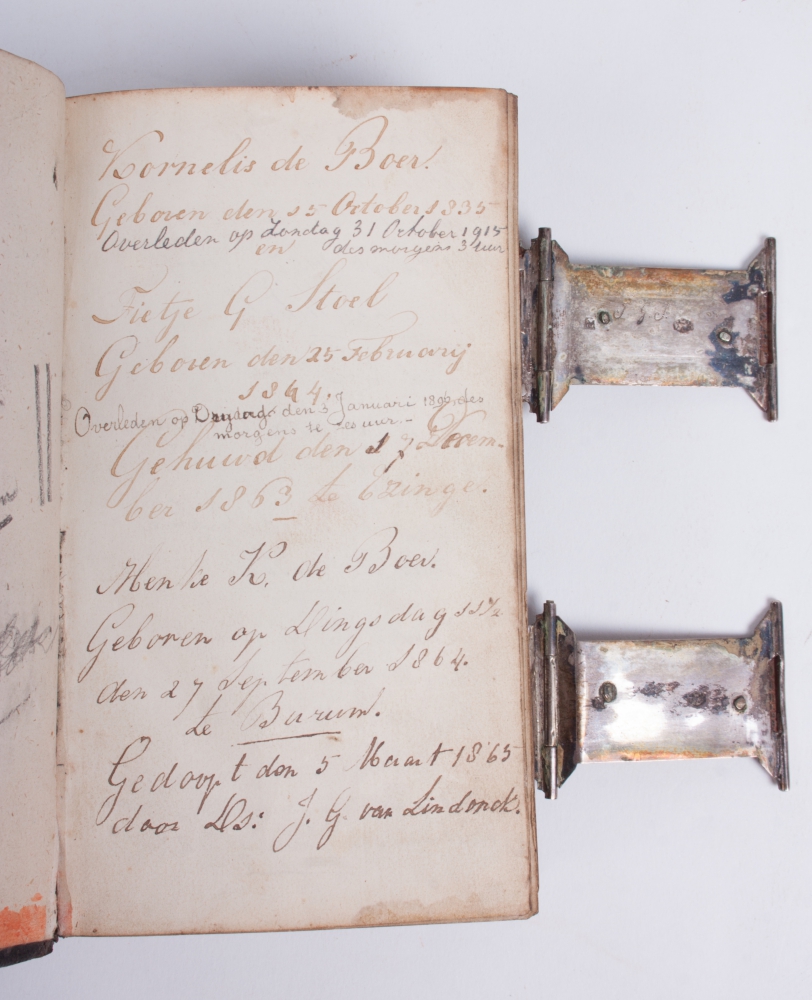 Kornelis de Boer.
Geboren den 15 October 1835
Overleden op Zondag 31 October 1915
en des morgens 3 uur
Fietje G Stoel
Geboren den 25 Februarij
1844,
Overleden op den 3 Januari des
morgens te zes uur.-
Gehuwd den 17 Decem-
ber 1863 te Ezinge.
Menke K. de Boer.
Geboren op Dingsdag 11½
den 27 September 1864.
te Burum.
Gedoopt den 5 Maart 1865
door Ds: J. G. van Lindonck.